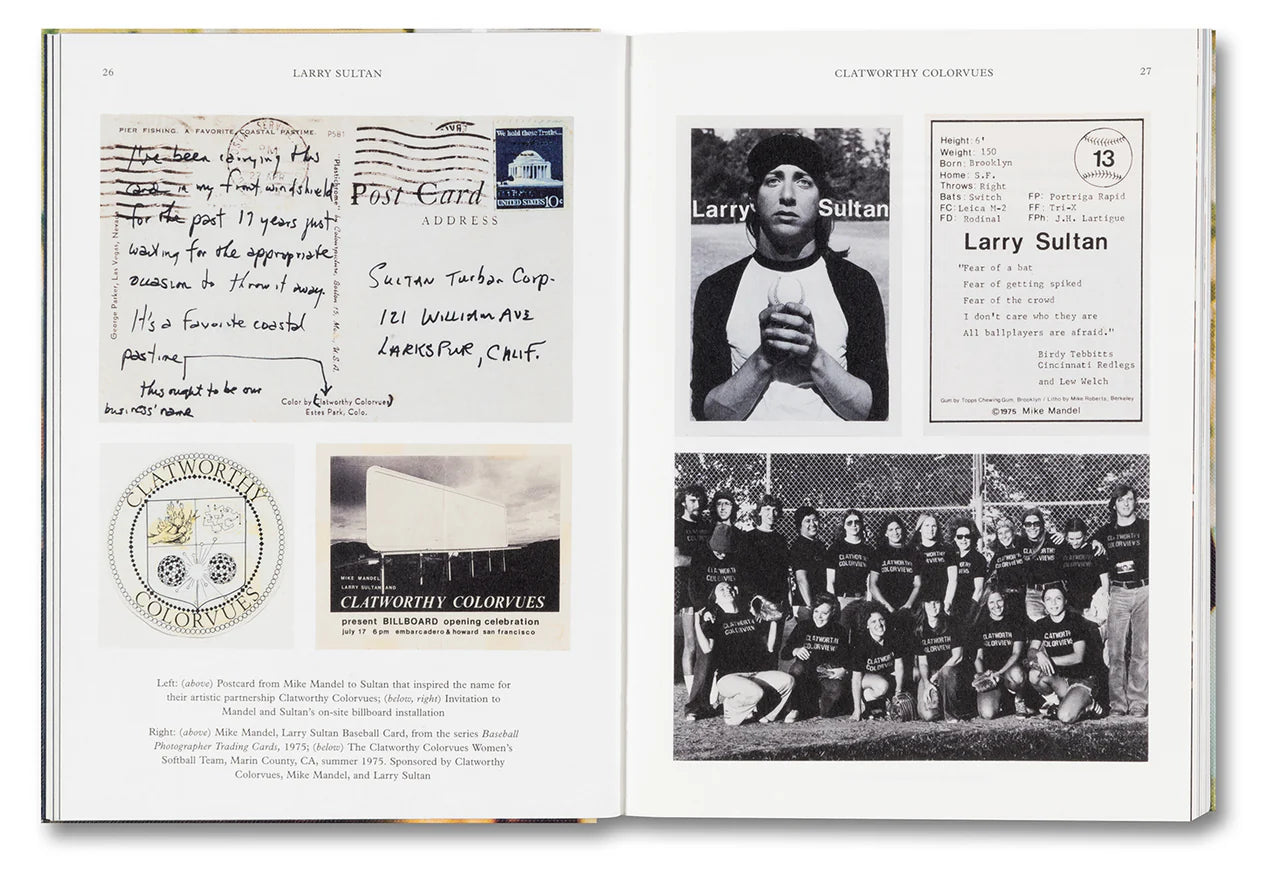 26
LARRY SULTAN
PIER FISHING. A FAVORITE COASTAL PASTIME.
P581
I've been carrying this
card in my front windshield
for the past 17 years just
waiting for the appropriate
occasion to throw it away.
It's a favorite coastal
pastime
this ought to be our
business' name
George Parker, Las Vegas, Nev.
Color by Clatworthy Colorvues
Estes Park, Colo.
Post Card
ADDRESS
We hold these Truths...
UNITED STATES 10c
SULTAN Turban Corp.
121 WILLIAM AVE
LARKSPUR, CALIF.
CLATWORTHY
COLORVUES
MIKE MANDEL
LARRY SULTAN AND
CLATWORTHY COLORVUES
present BILLBOARD opening celebration
july 17 6pm embarcadero & howard san francisco
Left: (above) Postcard from Mike Mandel to Sultan that inspired the name for
their artistic partnership Clatworthy Colorvues; (below, right) Invitation to
Mandel and Sultan's on-site billboard installation
Right: (above) Mike Mandel, Larry Sultan Baseball Card, from the series Baseball
Photographer Trading Cards, 1975; (below) The Clatworthy Colorvues Women's
Softball Team, Marin County, CA, summer 1975. Sponsored by Clatworthy
Colorvues, Mike Mandel, and Larry Sultan
CLATWORTHY COLORVUES
27
Larry Sultan
Height: 6'
Weight: 150
Born: Brooklyn
Home: S.F.
Throws: Right
Bats: Switch
FC: Leica M-2
FD: Rodinal
13
FP: Portriga Rapid
FF: Tri-X
FPh: J.H. Lartigue
Larry Sultan
"Fear of a bat
Fear of getting spiked
Fear of the crowd
I don't care who they are
All ballplayers are afraid."
Birdy Tebbitts
Cincinnati Redlegs
and Lew Welch
Gum by Topps Chewing Gum, Brooklyn / Litho by Mike Roberts, Berkeley
©1975 Mike Mandel
CLATWORTHY
COLORVIEWS